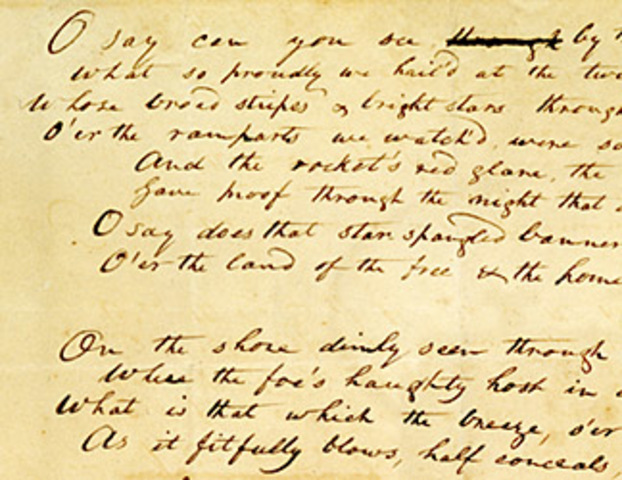 O say can you see through by
What so proudly we hail'd at the
Whose broad stripes & bright stars through
O'er the ramparts we watch'd, were
And the rocket's red glare, the
Gave proof through the night that
O say does that star spangled banner
O'er the land of the free & the home
On the shore dimly seen through
Where the foe's haughty host in
What is that which the breeze, o'er
As it fitfully blows, half conceals,